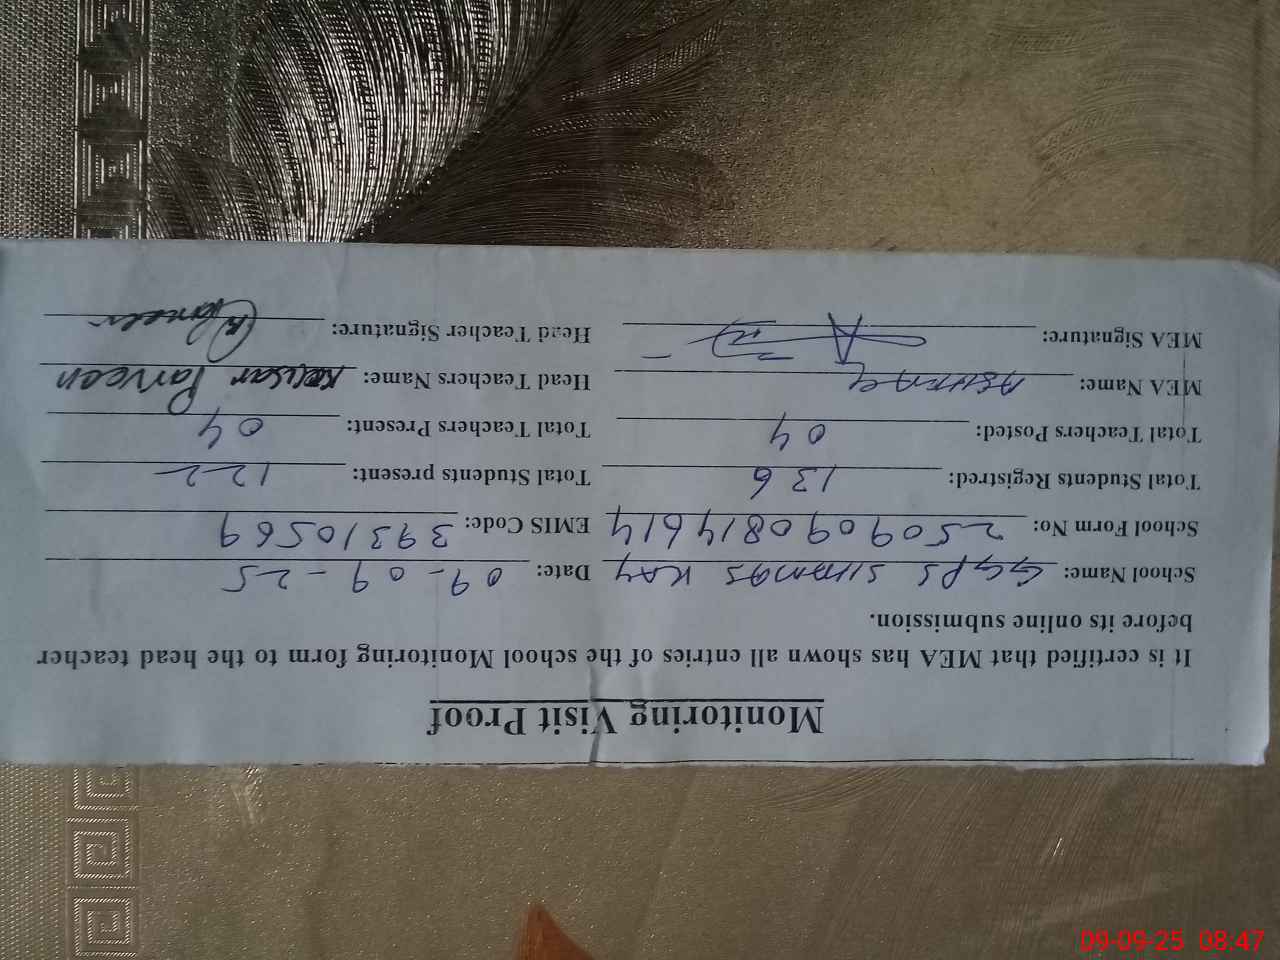 Monitoring Visit Proof
It is certified that MEA has shown all entries of the school Monitoring form to the head teacher
before its online submission.
School Name: GGPS Date: 09-09-25
School Form No: 250909081461 4 EMIS Code: 39310569
Total Students Registred: 136 Total Students present: 122
Total Teachers Posted: 04 Total Teachers Present: 04
MEA Name: Head Teachers Name: Kousar Parveen
MEA Signature: Head Teacher Signature:
09-09-25 08:47